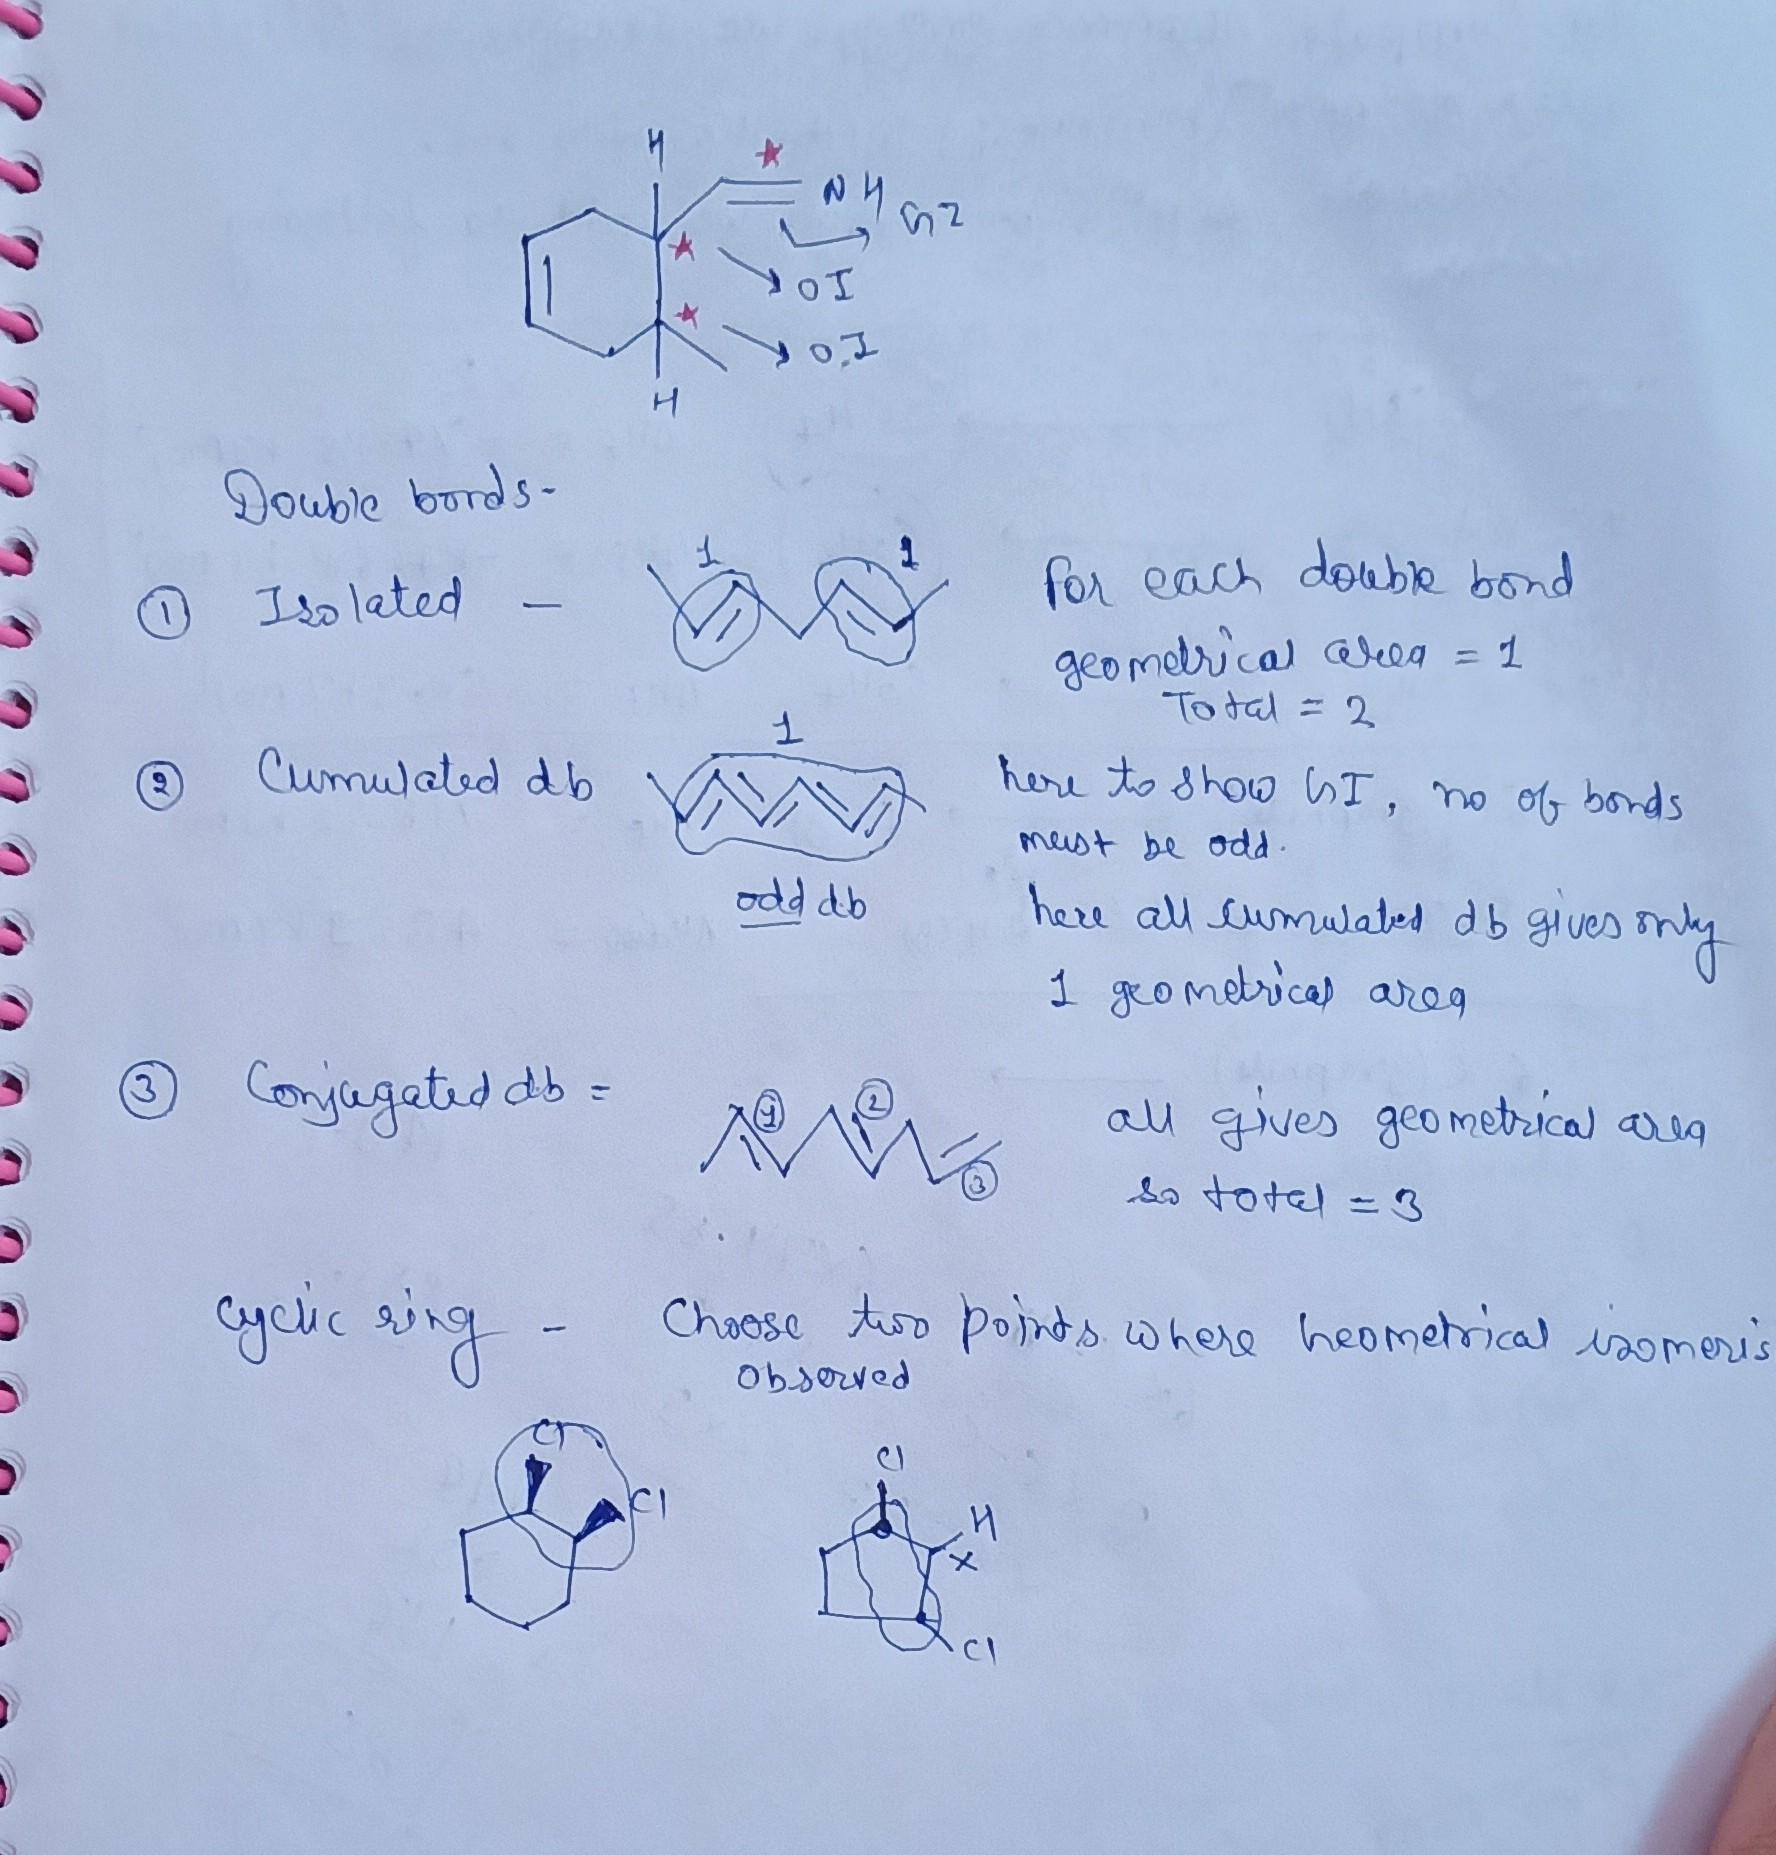 H
NH GI
OI
O.I
H
Double bonds-
1 1
① Isolated - for each double bond
geometrical area = 1
Total = 2
1
② Cumulated db here to show GI, no of bonds
must be odd.
odd db here all cumulated db gives only
1 geometrical area
③ Conjugated db = ① ② ③ all gives geometrical area
so total = 3
Cyclic ring - Choose two points where Geometrical isomeris
observed
Cl Cl
Cl H
x
Cl